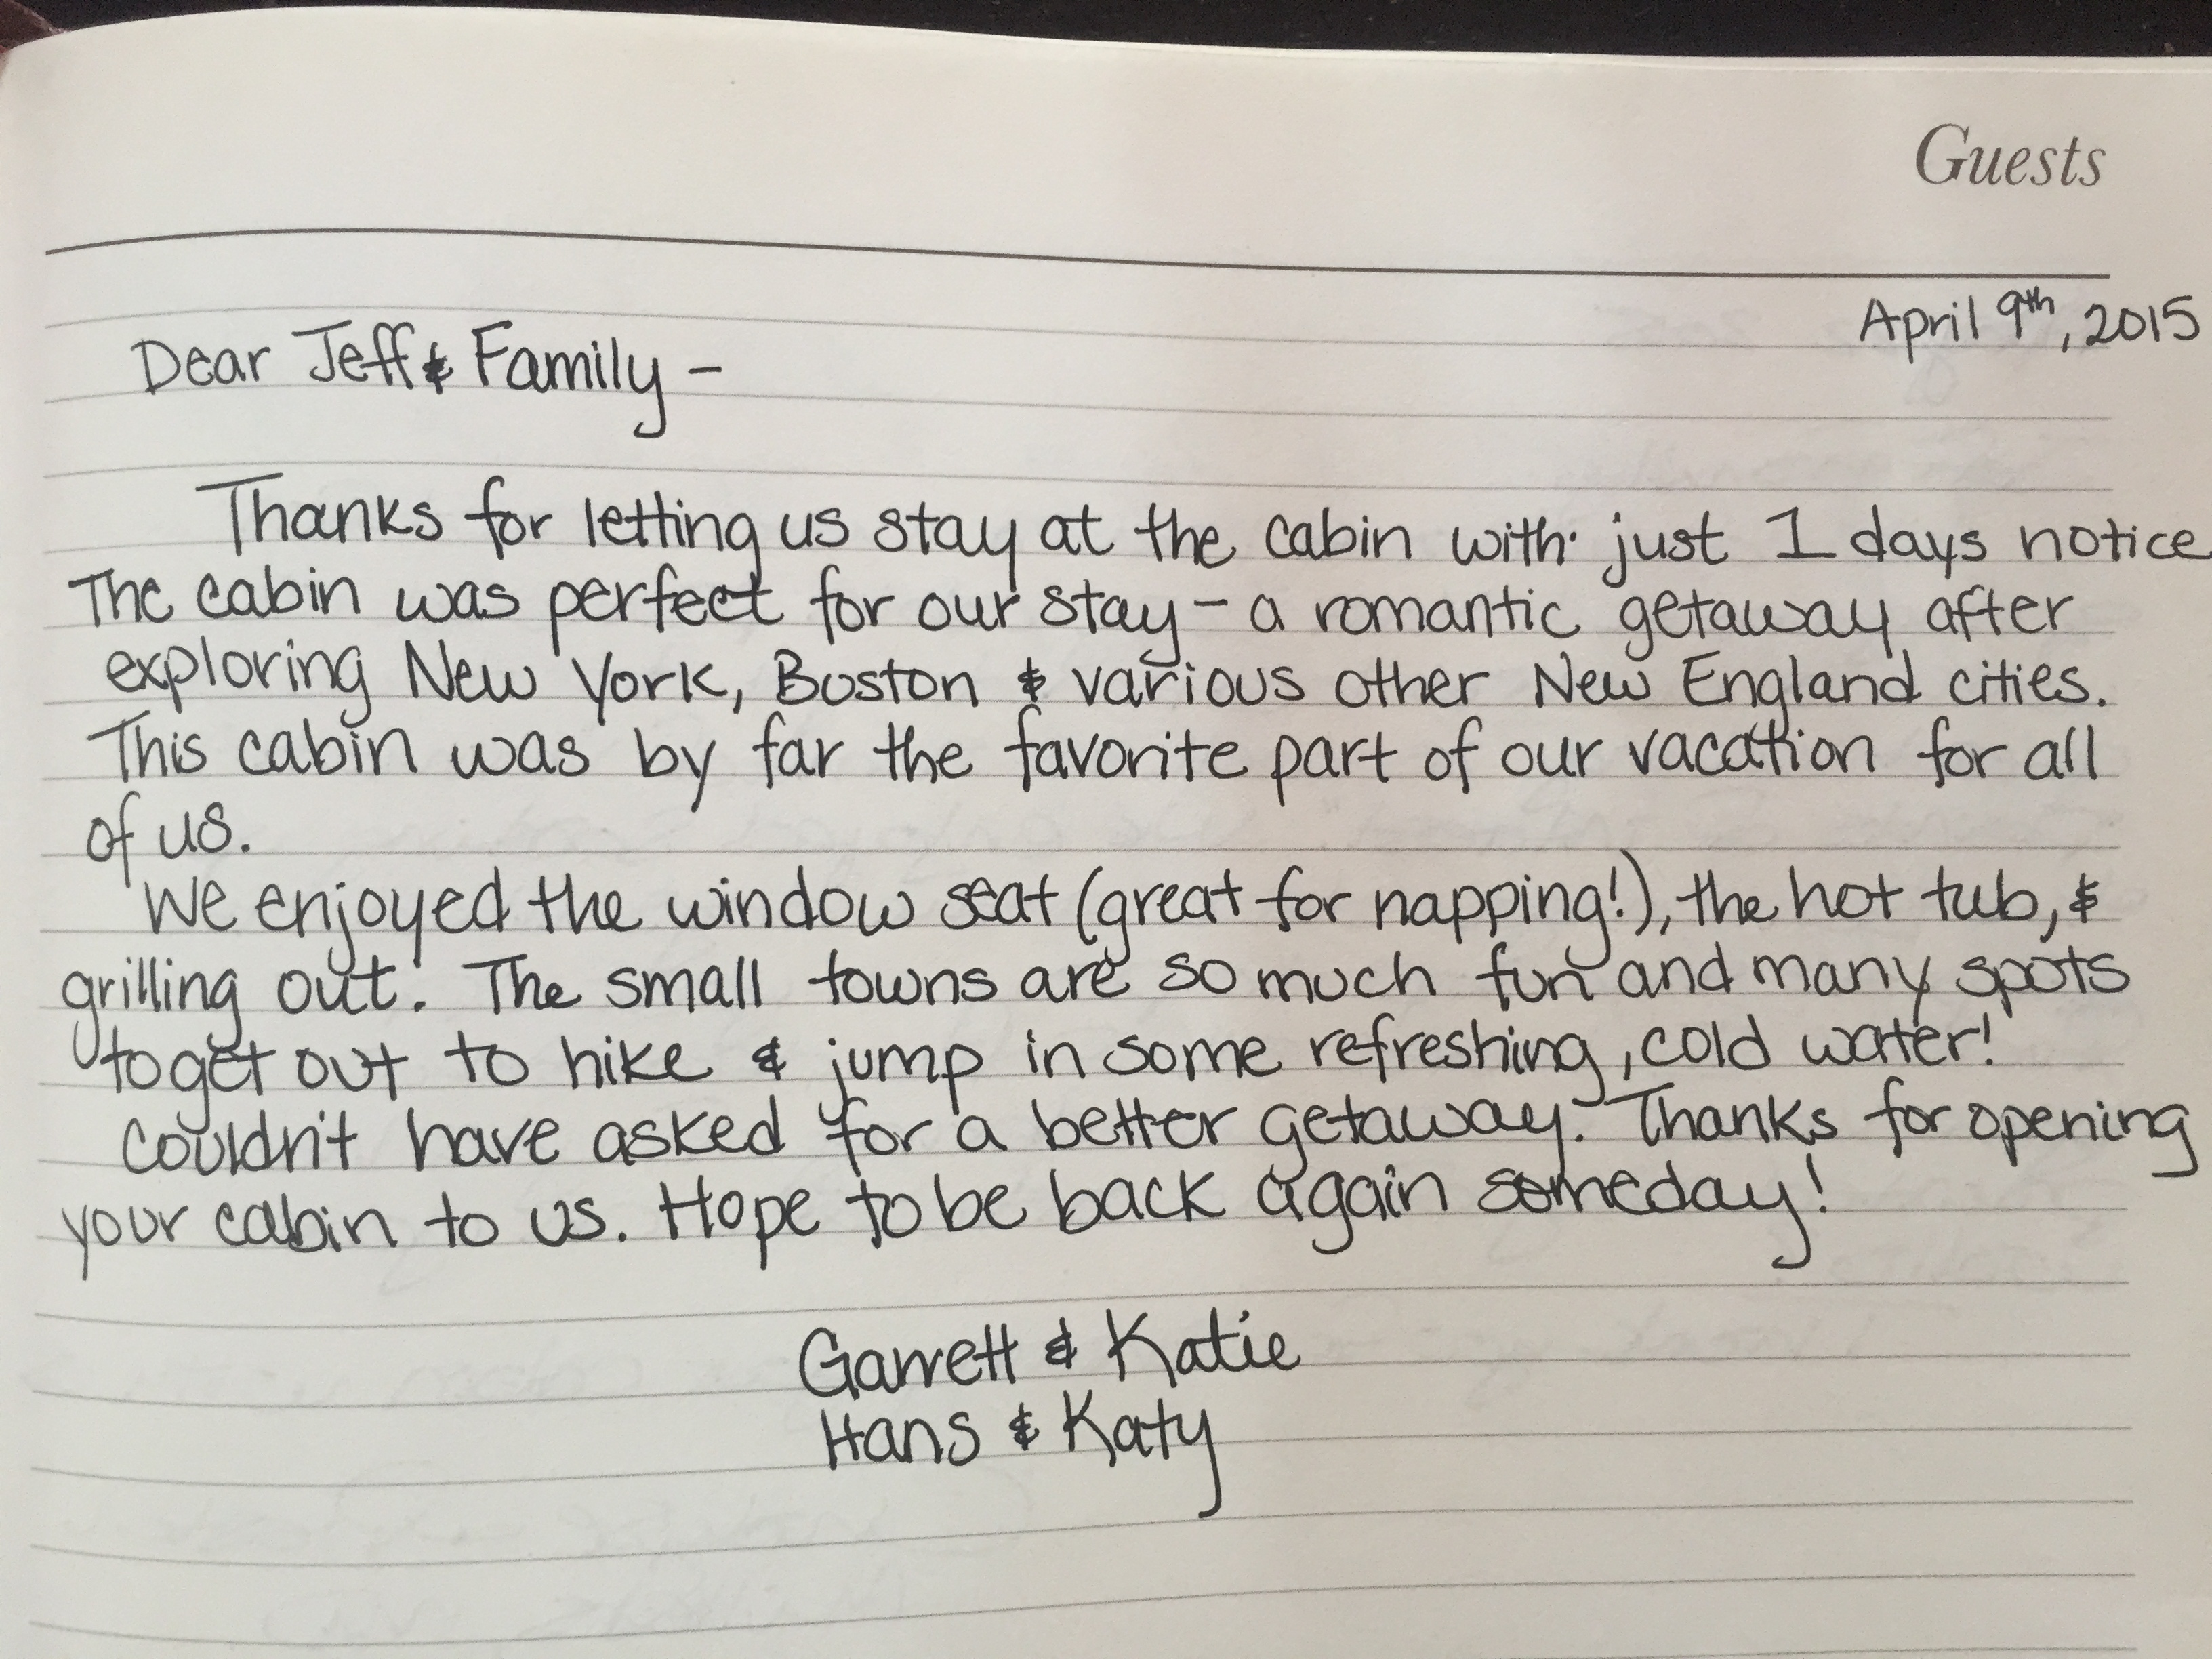 Guests
April 9th, 2015
Dear Jeff & Family -
Thanks for letting us stay at the cabin with just 1 days notice
The cabin was perfect for our stay - a romantic getaway after
exploring New York, Boston & various other New England cities.
This cabin was by far the favorite part of our vacation for all
of us.
We enjoyed the window seat (great for napping!), the hot tub, &
grilling out. The small towns are so much fun and many spots
to get out to hike & jump in some refreshing, cold water!
Couldn't have asked for a better getaway. Thanks for opening
your cabin to us. Hope to be back again someday!
Garrett & Katie
Hans & Katy